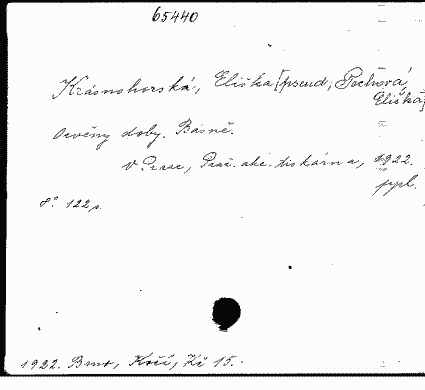 65440
Krásnohorská, Eliška [pseud; Pechová,
Eliška]
Ozvěny doby. Básně.
V Praze, Praž. akc. tiskárna, 1922.
ppl.
8° 122 p.
1922. Brno, Kočí, Kč 15.-